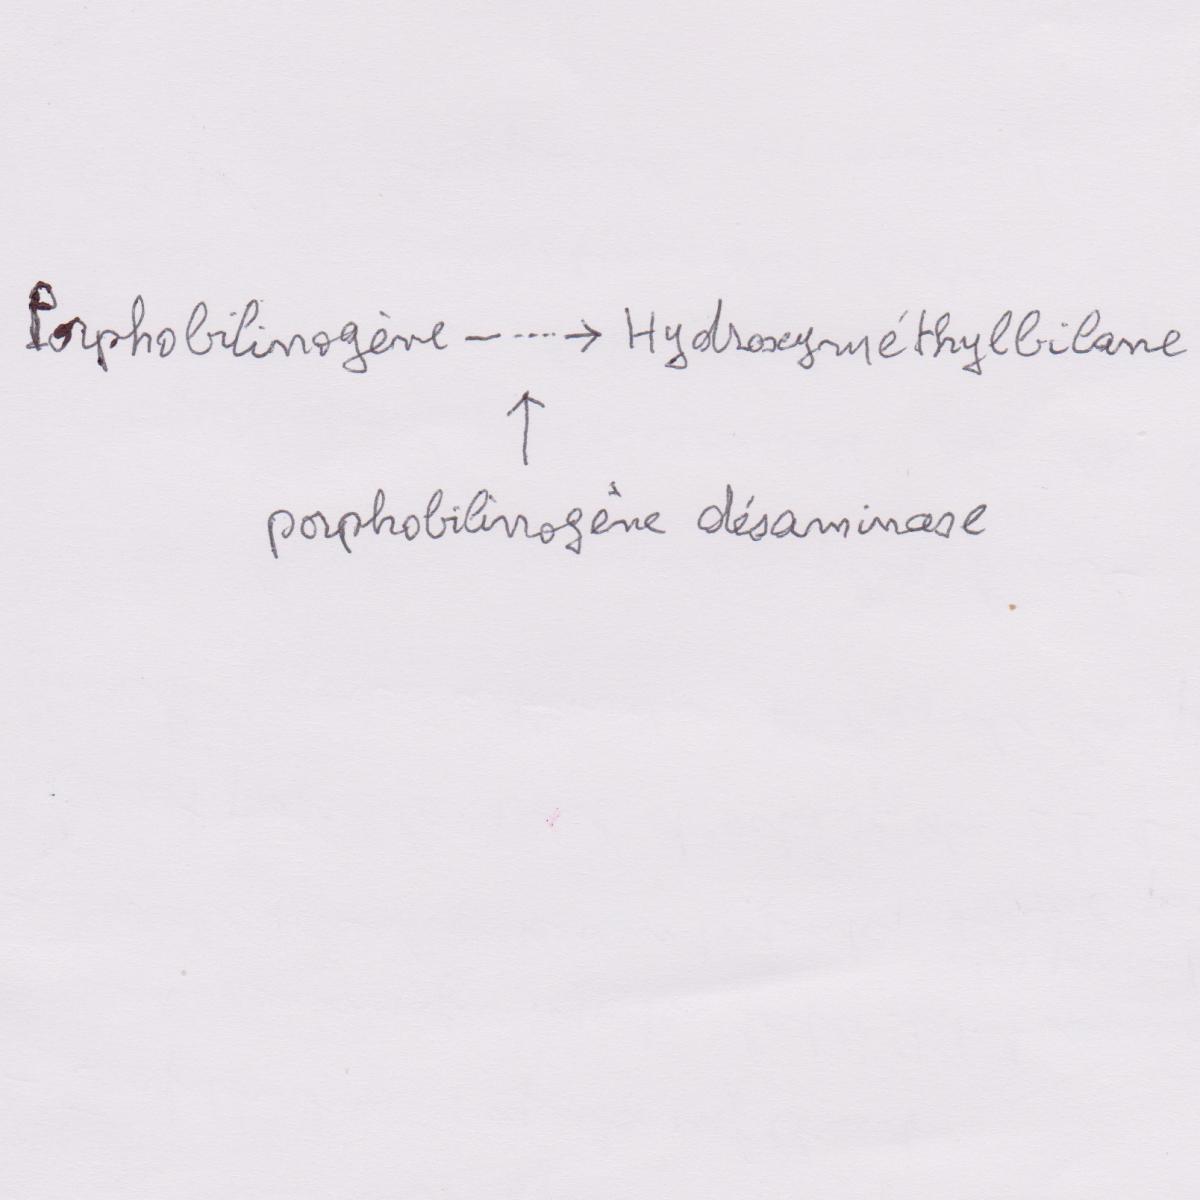 Porphobilinogène -----> Hydroxyméthylbilane
↑
porphobilinogène désaminase